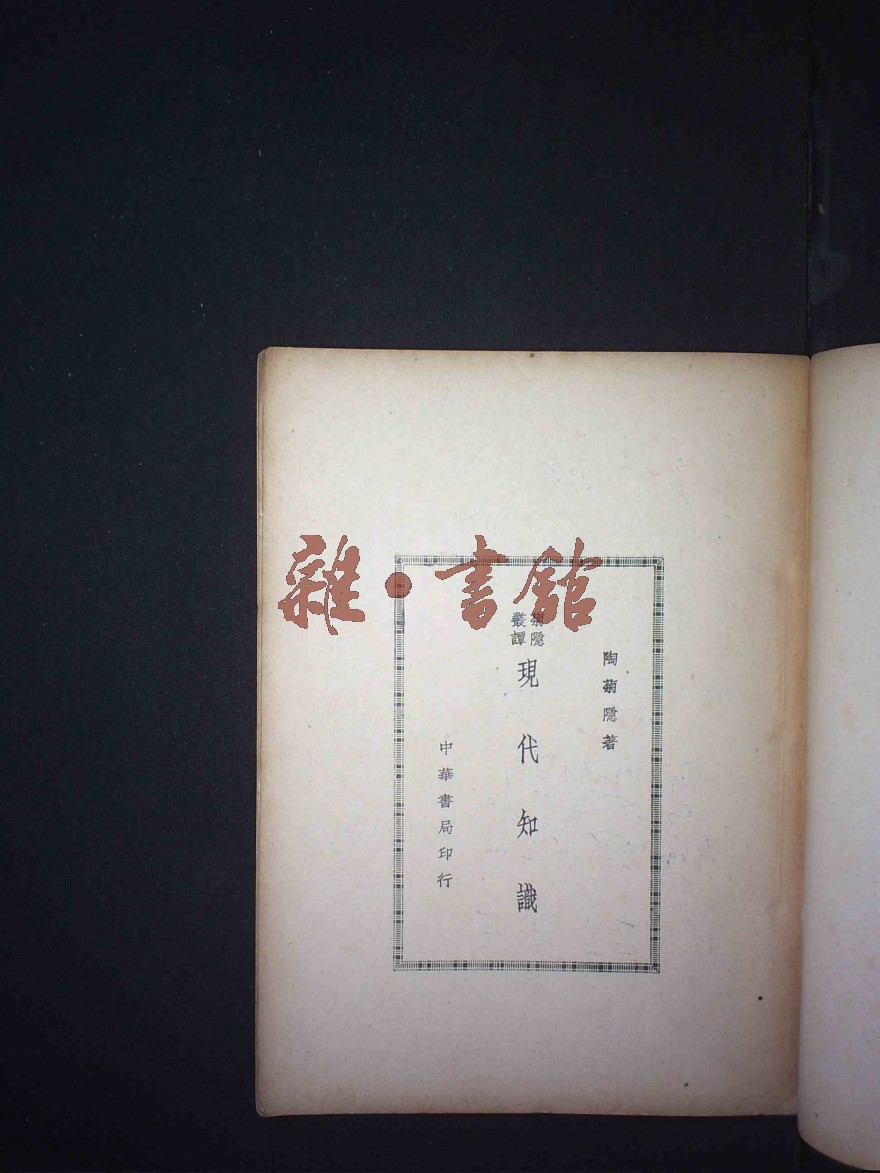 雜·書館
陶菊隱著
菊隱
叢譚
現代知識
中華書局印行